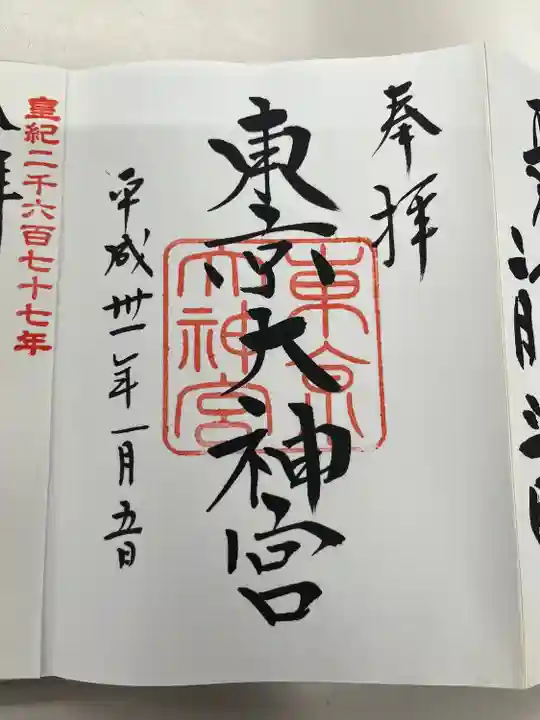 奉拝
東京大神宮
東京大神宮
平成卅一年一月五日
皇紀二千六百七十七年
拝